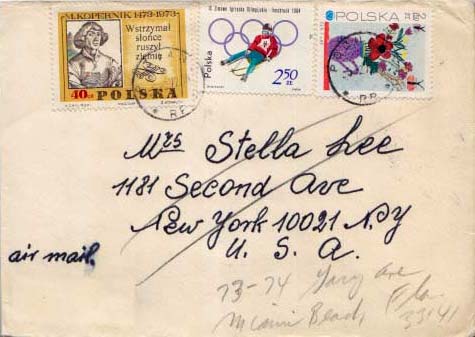 M. KOPERNIK 1473-1973
Wstrzymał
słońce
ruszył
ziemię
40 GR
POLSKA
IX Zimowe Igrzyska Olimpijskie - Innsbruck 1964
Polska
2,50
ZŁ
POLSKA
Mrs Stella Lee
1181 Second Ave
New York 10021 N.Y
U. S. A.
air mail.
73-74 Ave
Miami Beach Fla
33141